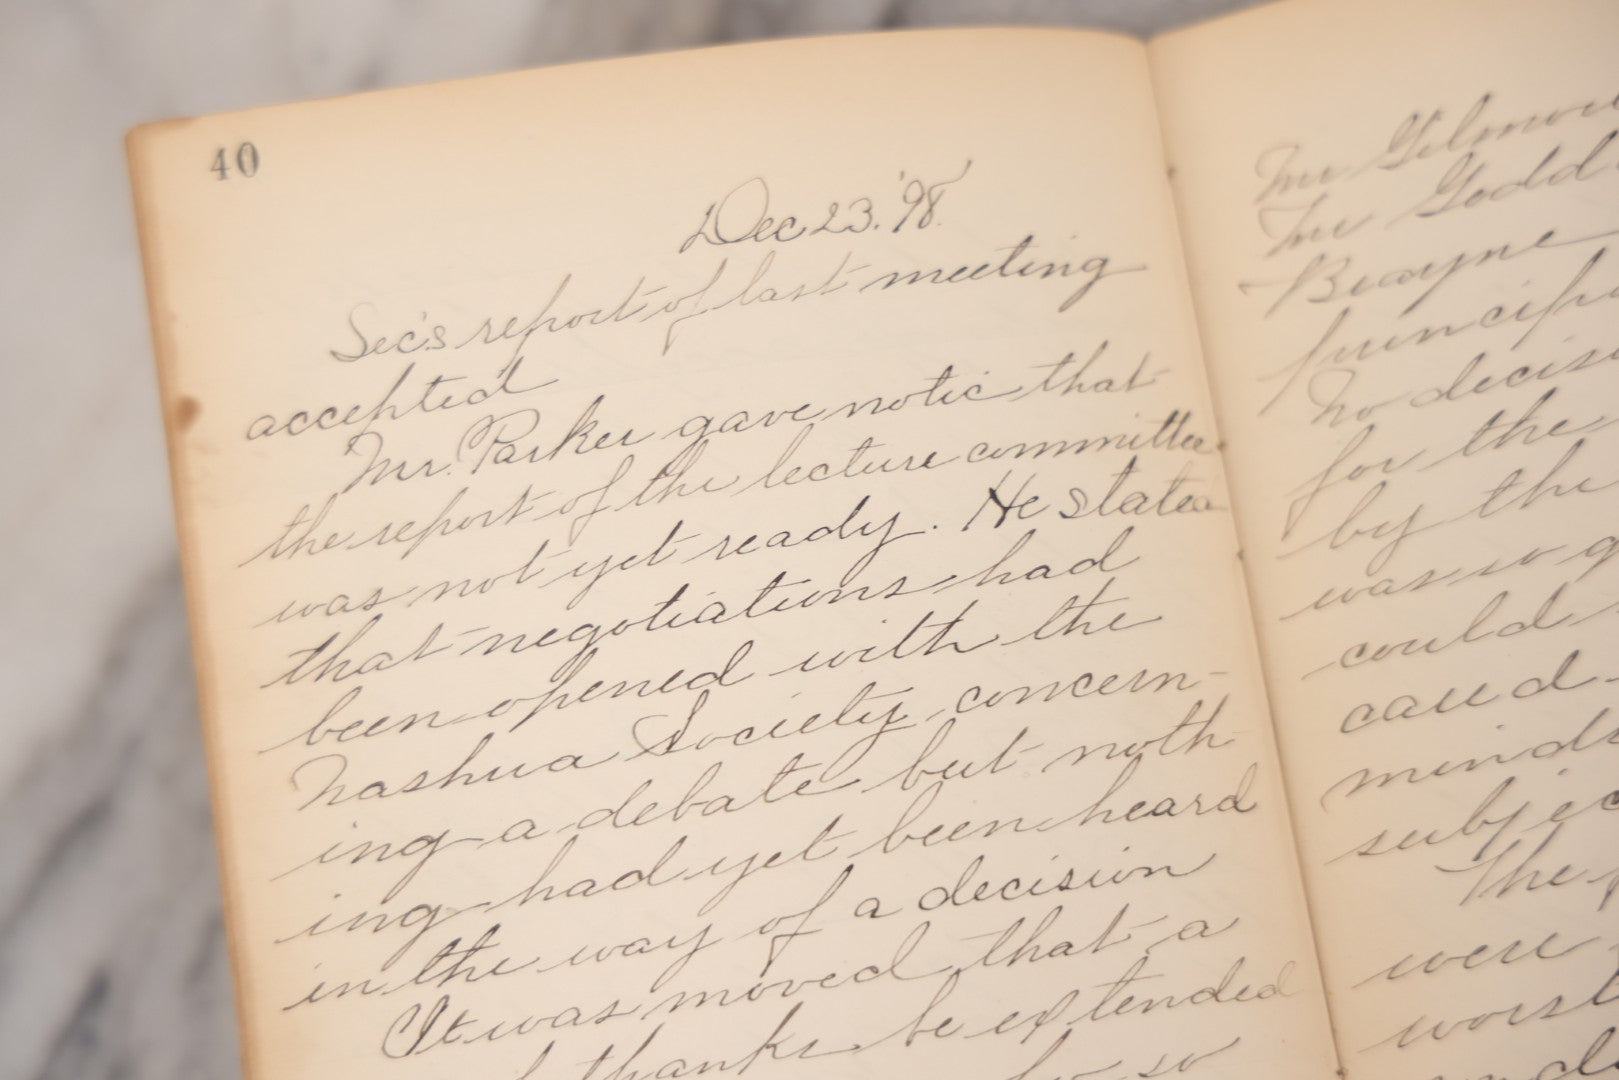 40
Dec 23. '98.
Sec's report of last meeting
accepted
Mr. Parker gave notic that
the report of the lecture committee
was not yet ready. He stated
that negotiations had
been opened with the
Nashua Society concern-
ing a debate but noth-
ing had yet been heard
in the way of a decision
It was moved that a
thanks be extended
so
Mr
Mr
Brayne
No
for the
by the
was so
could
The
were